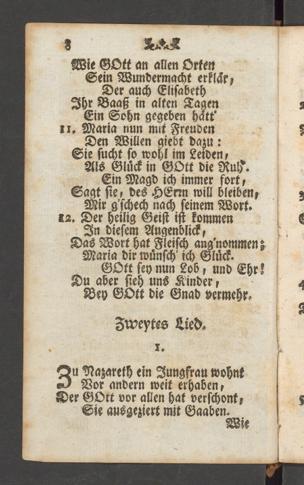 8
Wie GOtt an allen Orten
Sein Wundermacht erklär,
Der auch Elisabeth
Ihr Baaß in alten Tagen
Ein Sohn gegeben hätt'
11. Maria nun mit Freuden
Den Willen giebt dazu:
Sie sucht so wohl im Leiden,
Als Glück in GOtt die Ruh.
Ein Magd ich immer fort,
Sagt sie, des HErrn will bleiben,
Mir g'schech nach seinem Wort.
12. Der heilig Geist ist kommen
In diesem Augenblick,
Das Wort hat Fleisch ang'nommen;
Maria dir wünsch' ich Glück.
GOtt sey nun Lob, und Ehr!
Du aber sieh uns Kinder,
Bey GOtt die Gnad vermehr.
Zweytes Lied.
1.
Zu Nazareth ein Jungfrau wohnt
Vor andern weit erhaben,
Der GOtt vor allen hat verschont,
Sie ausgeziert mit Gaaben.
Wie